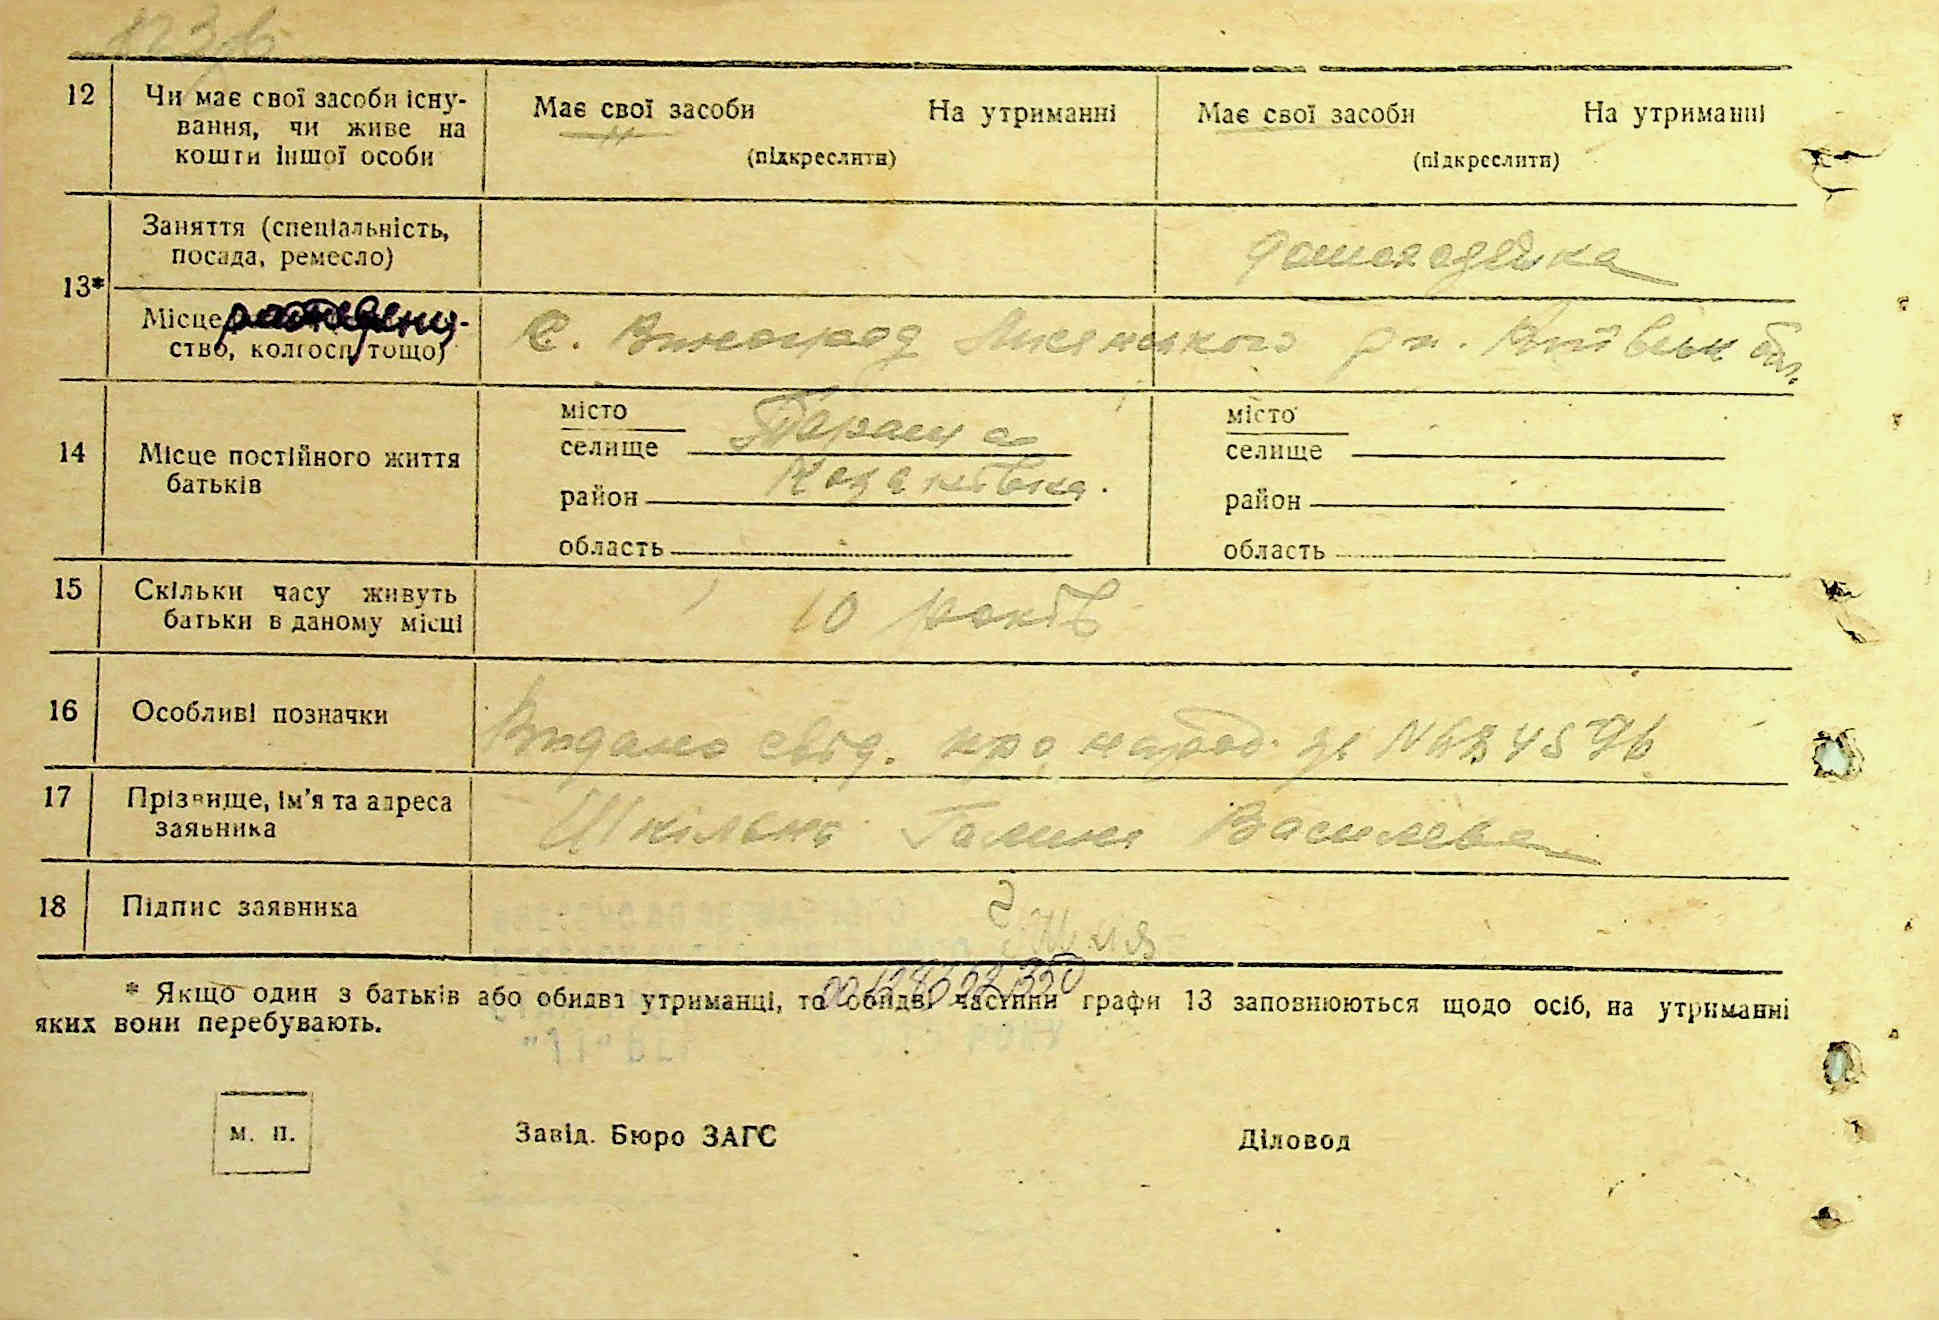 12 Чи має свої засоби існу-
вання, чи живе на
кошти іншої особи
Має свої засоби На утриманні
(підкреслити)
Має свої засоби На утриманні
(підкреслити)
13*
Заняття (спеціальність,
посада, ремесло)
домохазяйка
Місце рождения
ство, колгосп тощо)
С. Виноград Лисянського рн. Київськ обл.
14 Місце постійного життя
батьків
місто
селище Тараща
район
область
місто
селище
район
область
15 Скільки часу живуть
батьки в даному місці
10 років
16 Особливі позначки
Видано свід. про народ. за №
17 Прізвище, ім'я та адреса
заявника
Шкільна Галина Василева
18 Підпис заявника
00128622350
* Якщо один з батьків або обидва утриманці, то обидві частини графи 13 заповнюються щодо осіб, на утриманні
яких вони перебувають.
м. п.
Завід. Бюро ЗАГС
Діловод